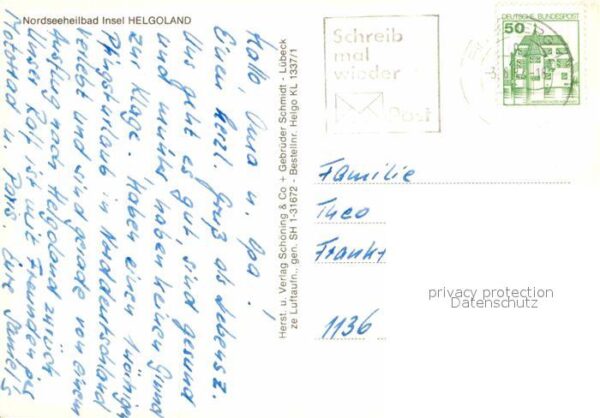 Nordseeheilbad Insel HELGOLAND
Hallo, Oma u. Opa!
Euch herzl. Gruß als Lebensz.
Uns geht es gut, sind gesund
und munter, haben keinen Grund
zur Klage. Haben einen 1 wöchigen
Pfingsturlaub in Norddeutschland
verlebt und sind gerade von einem
Ausflug nach Helgoland zurück.
Unser Rolf ist mit Freunden per
Motorrad u. Paris. Eure
Herst. u. Verlag Schöning & Co + Gebrüder Schmidt - Lübeck
ze Luftaufn., gen. SH 1-31672 - Bestellnr. Helgo KL 1337/1
Schreib
mal
wieder
Post
DEUTSCHE BUNDESPOST
50
Familie
Theo
Frankt
1136
privacy protection
Datenschutz